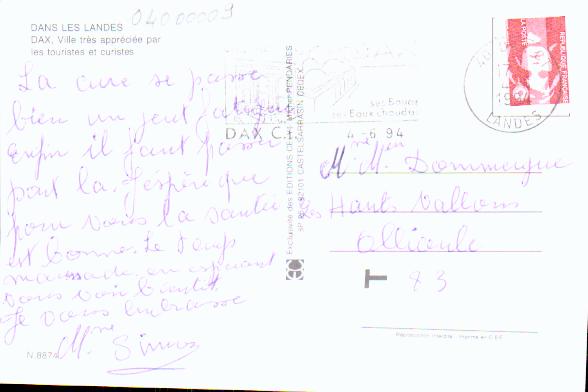 04000009
DANS LES LANDES
DAX, Ville très appréciée par
les touristes et curistes
La cure se passe
bien un peut fatigue
enfin il faut passer
part la. J'espère que
pour vous la santée
est bonne. Le temps
maussade. en espérant
vous voir bientôt
Je vous embrasse
Mme Simos
N.887
Exclusivité des EDITIONS
82101 CASTELSARRASIN CEDEX
ses Eaux chaudes
DAX C.T. 4-6 94
LANDES
LA POSTE
REPUBLIQUE FRANÇAISE
M. Dommergue
Les Hauts Vallons
Ollioule
T 83
Reproduction interdite - Imprimé en C.E.E.